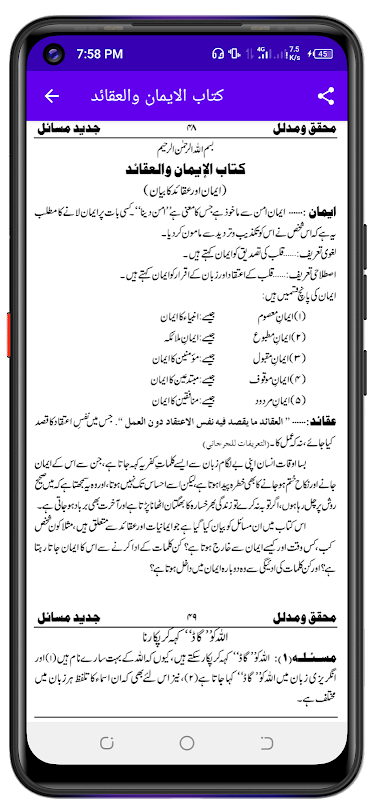 7:58 PM
4G 7.5 K/s 45
کتاب الایمان والعقائد
محقق ومدلل ۴۸ جدید مسائل
بسم اللہ الرحمٰن الرحیم
کتاب الإیمان والعقائد
(ایمان اور عقائد کا بیان)
ایمان :...... ایمان امن سے ماخوذ ہے جس کا معنی ہے ”امن دینا“۔ کسی بات پر ایمان لانے کا مطلب
یہ ہے کہ اس شخص نے اس کو تکذیب وتردید سے مامون کردیا۔
لغوی تعریف:...... قلب کی تصدیق کو ایمان کہتے ہیں۔
اصطلاحی تعریف:...... قلب کے اعتقاد اور زبان کے اقرار کو ایمان کہتے ہیں۔
ایمان کی پانچ قسمیں ہیں:
(۱) ایمانِ معصوم جیسے: انبیاء کا ایمان
(۲) ایمانِ مطبوع جیسے: ایمانِ ملائکہ
(۳) ایمانِ مقبول جیسے: مؤمنین کا ایمان
(۴) ایمانِ موقوف جیسے: مبتدعین کا ایمان
(۵) ایمانِ مردود جیسے: منافقین کا ایمان
عقائد:...... ” العقائد ما یقصد فیه نفس الاعتقاد دون العمل “. جس میں نفسِ اعتقاد کا قصد
کیا جائے، نہ کہ عمل کا۔ (التعریفات للجرجانی)
بسا اوقات انسان اپنی بے لگام زبان سے ایسے کلماتِ کفریہ کہہ جاتا ہے، جن سے اس کے ایمان
جانے اور نکاح ختم ہوجانے کا بھی خطرہ پیدا ہوتا ہے، لیکن اسے احساس تک نہیں ہوتا، اور وہ یہ سمجھتا ہے کہ میں صحیح
روش پر چل رہا ہوں، اگر توبہ نہ کرے تو زندگی بھر خسارہ کا بھگتان اٹھانا پڑتا ہے اور آخرت بھی برباد ہوجاتی ہے۔
اس کتاب میں ان مسائل کو بیان کیا گیا ہے جو ایمانیات اور عقائد سے متعلق ہیں، مثلاً کون شخص
کب، کس وقت اور کیسے ایمان سے خارج ہوتا ہے؟ کن کلمات کے ادا کرنے سے اس کا ایمان جاتا رہتا
ہے؟ اور کن کلمات کی ادائیگی سے وہ دوبارہ ایمان میں داخل ہوتا ہے؟
محقق ومدلل ۴۹ جدید مسائل
اللہ کو ”گاڈ“ کہہ کر پکارنا
مسئلہ (۱): اللہ کو ”گاڈ“ کہہ کر پکار سکتے ہیں، کیوں کہ اللہ کے بہت سارے نام ہیں (۱) اور
انگریزی زبان میں اللہ کو ”گاڈ“ کہا جاتا ہے (۲)، نیز اس لئے بھی کہ ان اسماء کا تلفظ ہر زبان میں
مختلف ہے۔